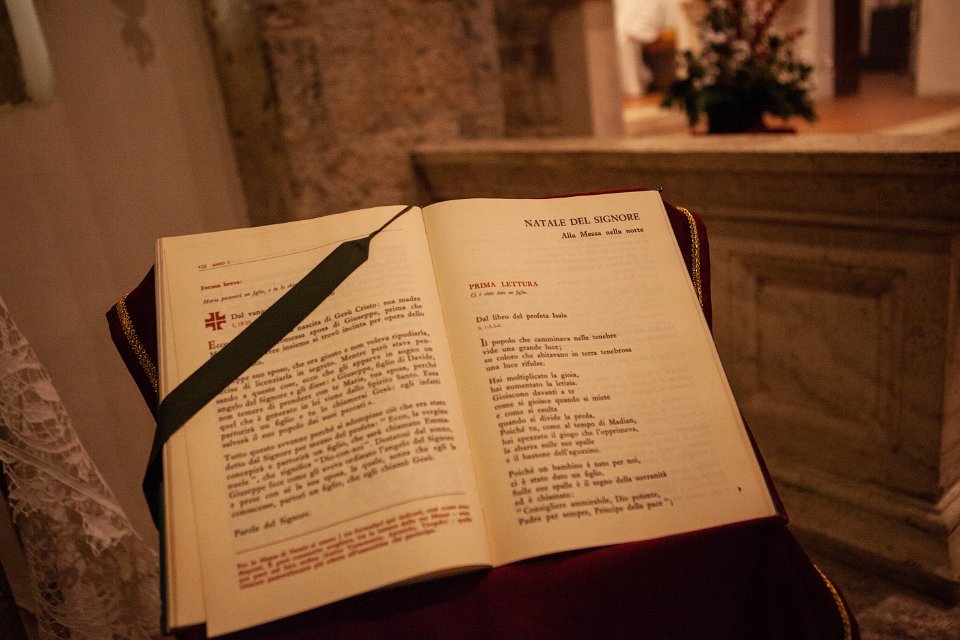 432 ANNO C
Forma breve:
Maria partorirà un figlio, e tu lo
Dal van
1, 18-25
nascita di Gesù Cristo: sua madre
messa sposa di Giuseppe, prima che
ere insieme si trovò incinta per opera dello
ppe suo sposo, che era giusto e non voleva ripudiarla,
cise di licenziarla in segreto. Mentre però stava pen-
sando a queste cose, ecco che gli apparve in sogno un
angelo del Signore e gli disse: « Giuseppe, figlio di Davide,
non temere di prendere con te Maria, tua sposa, perché
quel che è generato in lei viene dallo Spirito Santo. Essa
partorirà un figlio e tu lo chiamerai Gesù: egli infatti
salverà il suo popolo dai suoi peccati ».
Tutto questo avvenne perché si adempisse ciò che era stato
detto dal Signore per mezzo del profeta: "Ecco, la vergine
concepirà e partorirà un figlio, che sarà chiamato Emma-
nuele", che significa "Dio-con-noi". Destatosi dal sonno,
Giuseppe fece come gli aveva ordinato l'angelo del Signore
e prese con sé la sua sposa, la quale, senza che egli la
conoscesse, partorì un figlio, che egli chiamò Gesù.
Parola del Signore.
NATALE DEL SIGNORE
Alla Messa nella notte
PRIMA LETTURA
Ci è stato dato un figlio.
Dal libro del profeta Isaia
9, 1-3.5-6
Il popolo che camminava nelle tenebre
vide una grande luce;
su coloro che abitavano in terra tenebrosa
una luce rifulse.
Hai moltiplicato la gioia,
hai aumentato la letizia.
Gioiscono davanti a te
come si gioisce quando si miete
e come si esulta
quando si divide la preda.
Poiché tu, come al tempo di Madian,
hai spezzato il giogo che l'opprimeva,
la sbarra sulle sue spalle
e il bastone dell'aguzzino.
Poiché un bambino è nato per noi,
ci è stato dato un figlio.
Sulle sue spalle è il segno della sovranità
ed è chiamato:
"Consigliere ammirabile, Dio potente,
Padre per sempre, Principe della pace";